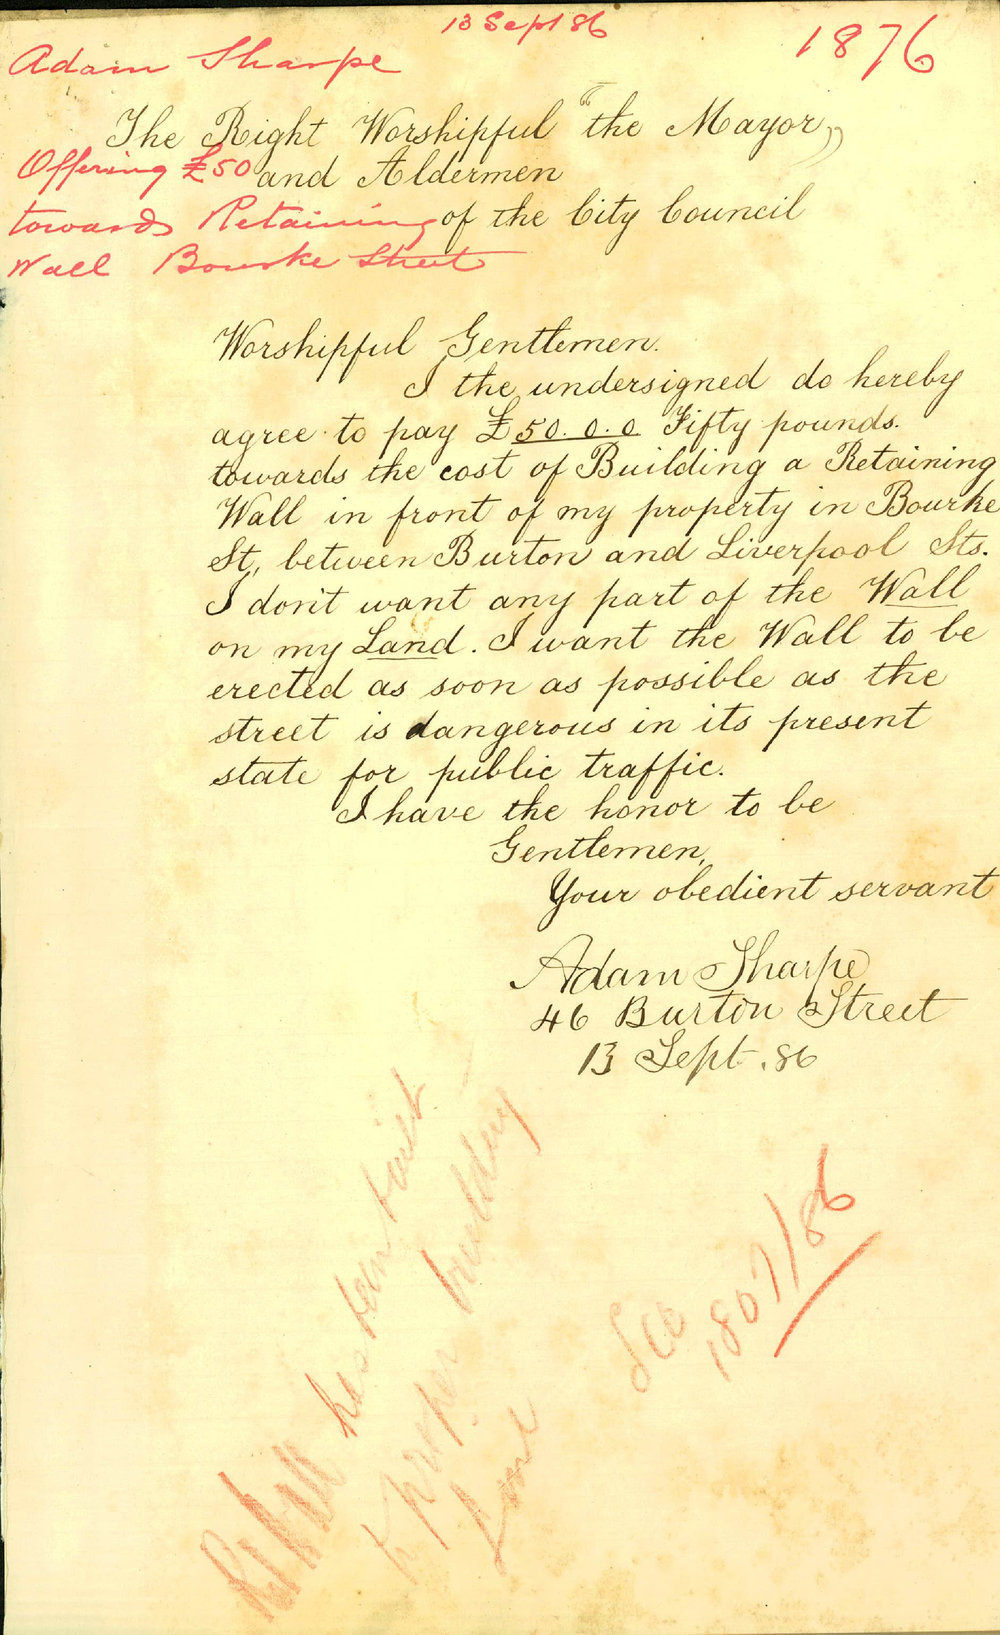 13 Sept 86
1876
Adam Sharpe
Offering £50
towards Retaining
Wall Bourke Street
The Right Worshipful "the Mayor"
and Aldermen
of the City Council
Worshipful Gentlemen.
I the undersigned do hereby
agree to pay £50.0.0 Fifty pounds.
towards the cost of Building a Retaining
Wall in front of my property in Bourke
St, between Burton and Liverpool Sts.
I don't want any part of the Wall
on my Land. I want the Wall to be
erected as soon as possible as the
street is dangerous in its present
state for public traffic.
I have the honor to be
Gentlemen,
Your obedient servant
Adam Sharpe
46 Burton Street
13 Sept. 86
has been built
to proper building
Line
See
1807/86